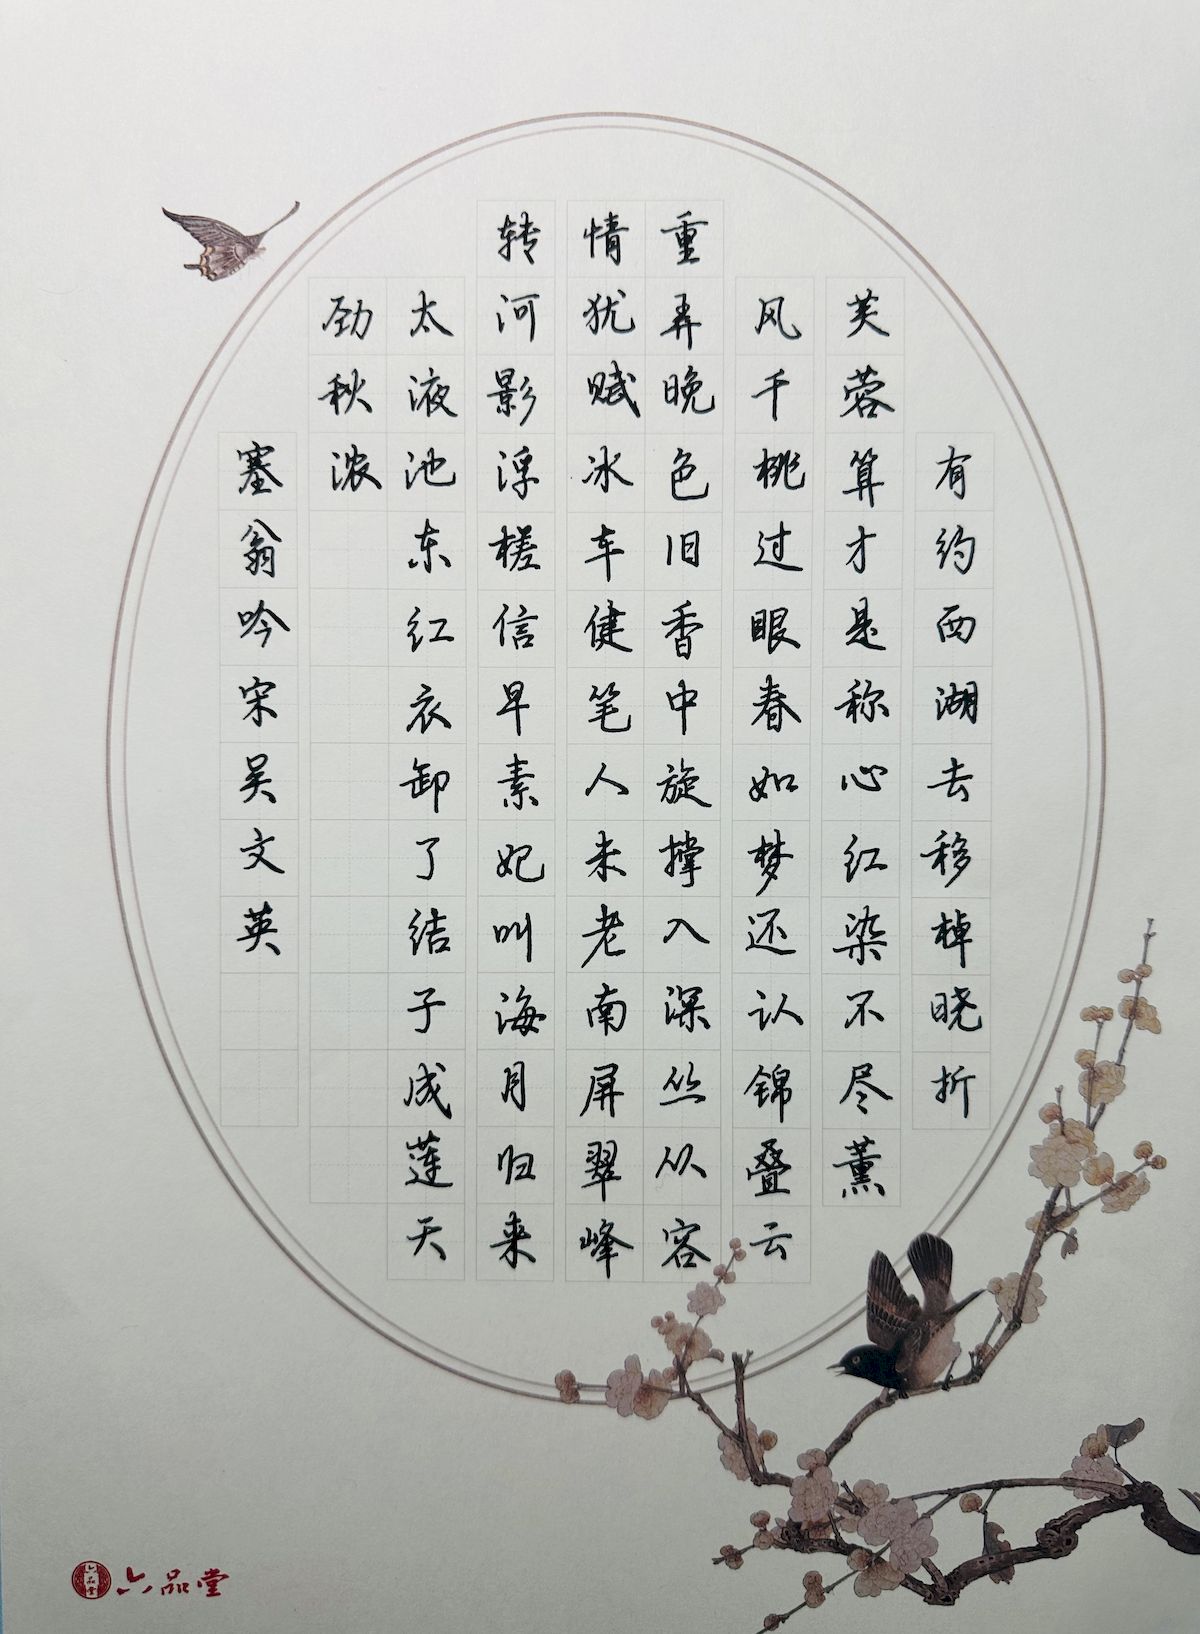 有约西湖去移棹晓折
芙蓉算才是称心红染不尽薰
风千桃过眼春如梦还认锦叠云
重弄晚色旧香中旋撑入深丛从容
情犹赋冰车健笔人未老南屏翠峰
转河影浮槎信早素妃叫海月归来
太液池东红衣卸了结子成莲天
劲秋浓
塞翁吟宋吴文英
六品堂